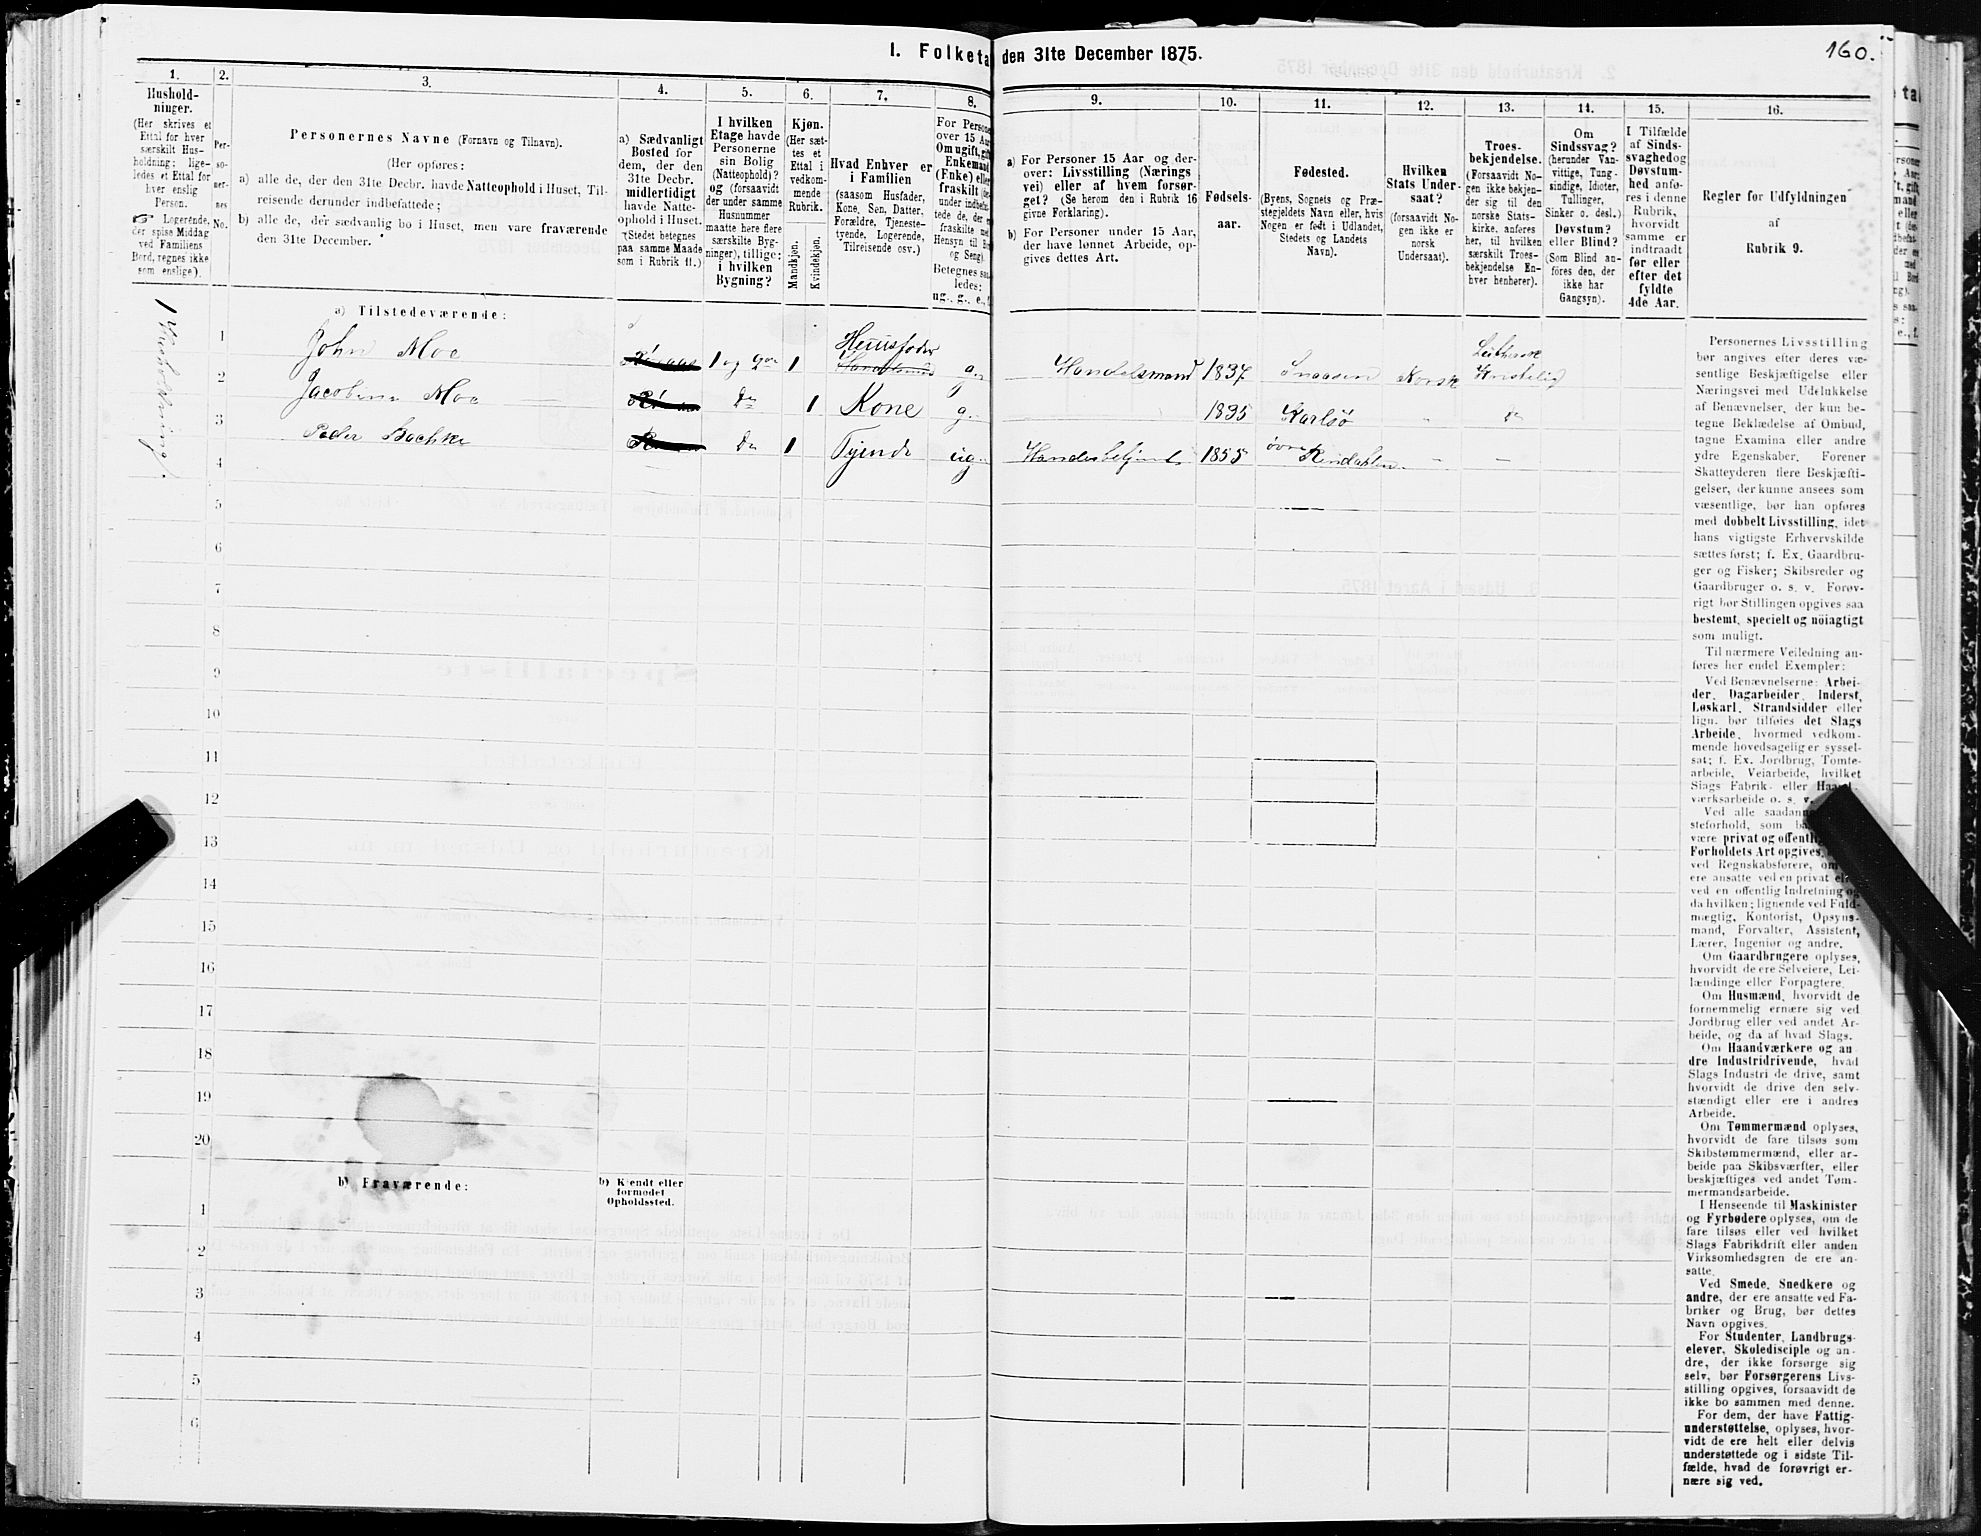 I. Folketa den 31te December 1875.
160.
1.
2.
3.
4.
5.
6.
7.
8.
9.
10.
11.
12.
13.
14.
15.
16.
Hushold-
ninger.
(Her skrives et
Ettal for hver
særskilt Hus-
holdning; lige-
ledes et Ettal for
hver enslig
Person.
☞ Logerende,
der spise Middag
ved Familiens
Bord, regnes ikke
som enslige).
Per-
so-
ner-
nes
No.
Personernes Navne (Fornavn og Tilnavn).
(Her opføres:
a) alle de, der den 31te Decbr. havde Natteophold i Huset, Til-
reisende derunder indbefattede;
b) alle de, der sædvanlig bo i Huset, men vare fraværende
den 31te December.
a) Sædvanligt
Bosted for
dem, der den
31te Decbr.
midlertidigt
havde Natte-
ophold i Huset.
(Stedet betegnes
paa samme Maade
som i Rubrik 11.)
I hvilken
Etage havde
Personerne
sin Bolig
(Natteophold)?
og (forsaavidt
der under samme
Husnummer
maatte høre flere
særskilte Byg-
ninger), tillige:
i hvilken
Bygning?
Kjøn.
(Her sæt-
tes et
Ettal i
vedkom-
mende
Rubrik.
Mandkjøn.
Kvindekjøn.
Hvad Enhver er
i Familien
(saasom Husfader,
Kone, Søn, Datter,
Forældre, Tjeneste-
tyende, Logerende,
Tilreisende osv.)
For Persone
over 15 Aa
Om ugift, gift
Enkemand
(Enke) elle
fraskilt (de
under indbefa
tede de, der e
fraskilte me
Hensyn til Bo
og Seng).
Betegnes saa
ledes:
ug., g., e., f.
a) For Personer 15 Aar og der-
over: Livsstilling (Nærings
vei) eller af hvem forsør-
get? (Se herom den i Rubrik 16
givne Forklaring).
b) For Personer under 15 Aar,
der have lønnet Arbeide, op-
gives dettes Art.
Fødsels-
aar.
Fødested.
(Byens, Sognets og Præ-
stegjeldets Navn eller, hvis
Nogen er født i Udlandet,
Stedets og Landets
Navn).
Hvilken
Stats Under-
saat?
(forsaavidt No-
gen ikke er
norsk
Undersaat).
Troes-
bekjendelse.
(Forsaavidt No-
gen ikke bekjen-
der sig til den
norske Stats-
kirke, anføres
her, til hvilken
særskilt Troes-
bekjendelse En-
hver henhører).
Om
Sindssvag?
(herunder Van-
vittige, Tung-
sindige, Idioter,
Tullinger,
Sinker o. desl.)
Døvstum?
eller Blind?
(Som Blind an-
føres den, der
ikke har
Gangsyn).
I Tilfælde
af Sinds-
svaghed og
Døvstum-
hed anfø-
res i denne
Rubrik,
hvorvidt
samme er
indtraadt
før eller
efter det
fyldte
4de Aar.
Regler for Udfyldningen
af
Rubrik 9.
a) Tilstedeværende:
1 John Moe 1 og 9 1 Huusfader g. Handelsmand 1837 Snaasen Norsk Lutherske Kristelig
2 Jacobine Moe Do 1 Kone g. 1835 Karlsø " Do
3 Peder Do 1 Tyende ug. 1855 øvre Rendahlen - -
4
5
6
7
8
9
10
11
12
13
14
15
16
17
18
19
20
b) Fraværende:
b) Kjendt eller
formodet
Opholdssted.
1
2
3
4
5
6
Personernes Livsstilling
bør angives efter deres væ-
sentlige Beskjæftigelse eller
Næringsvei med Udelukkelse
af Benævnelser, der kun be-
tegne Beklædelse af Ombud,
tagne Examina eller andre
ydre Egenskaber. Forener
Skatteyderen flere Beskjæfti-
gelser, der kunne ansees som
væsentlige, bør han opføres
med dobbelt Livsstilling, idet
hans vigtigste Erhvervskilde
sættes først; f. Ex. Gaardbru-
ger og Fisker; Skibsreder og
Gaardbruger o. s. v. Forøv-
rigt bør Stillingen opgives saa
bestemt, specielt og nöiagtigt
som muligt.
Til nærmere Veiledning an-
føres her endel Exempler:
Ved Benævnelserne: Arbei-
der, Dagarbeider, Inderst,
Løskarl, Strandsidder eller
lign. bør tilføies det Slags
Arbeide, hvormed vedkom-
mende hovedsagelig er syssel-
sat; f. Ex. Jordbrug, Tomte-
arbeide, Veiarbeide, hvilket
Slags Fabrik- eller Haand-
værksarbeide o. s. v.
Ved alle saadanne
steforhold, som
være privat og offentlig
Forholdets Art opgives,
ved Regnskabsførere, om
ere ansatte ved en privat eller
ved en offentlig Indretning og
da hvilken; lignende ved Fuld-
mægtig, Kontorist, Opsyns-
mand, Forvalter, Assistent,
Lærer, Ingeniør og andre.
Om Gaardbrugere oplyses,
hvorvidt de ere Selveiere, Lei-
lændinge eller Forpagtere.
Om Husmænd, hvorvidt de
fornemmelig ernære sig ved
Jordbrug eller ved andet Ar-
beide, og da af hvad Slags.
Om Haandværkere og an
dre Industridrivende, hvad
Slags Industri de drive, samt
hvorvidt de drive den selv-
stændigt eller ere i andres
Arbeide.
Om Tømmermænd oplyses,
hvorvidt de fare tilsøs som
Skibstømmermænd, eller ar-
beide paa Skibsværfter, eller
beskjæftiges ved andet Tøm-
mermandsarbeide.
I Henseende til Maskinister
og Fyrbødere oplyses, om de
fare tilsøs eller ved hvilket
Slags Fabrikdrift eller anden
Virksomhedsgren de ere an-
satte.
Ved Smede, Snedkere og
andre, der ere ansatte ved Fa-
briker og Brug, bør dettes
Navn opgives.
For Studenter, Landbrugs-
elever, Skoledisciple og an-
dre, der ikke forsørge sig
selv, bør Forsørgerens Livs-
stilling opgives, forsaavidt de
ikke bo sammen med denne.
For dem, der have Fattig-
understøttelse, oplyses, hvor-
vidt de ere helt eller delvis
understøttede og i sidste Til-
fælde, hvad de forøvrigt er-
nære sig ved.